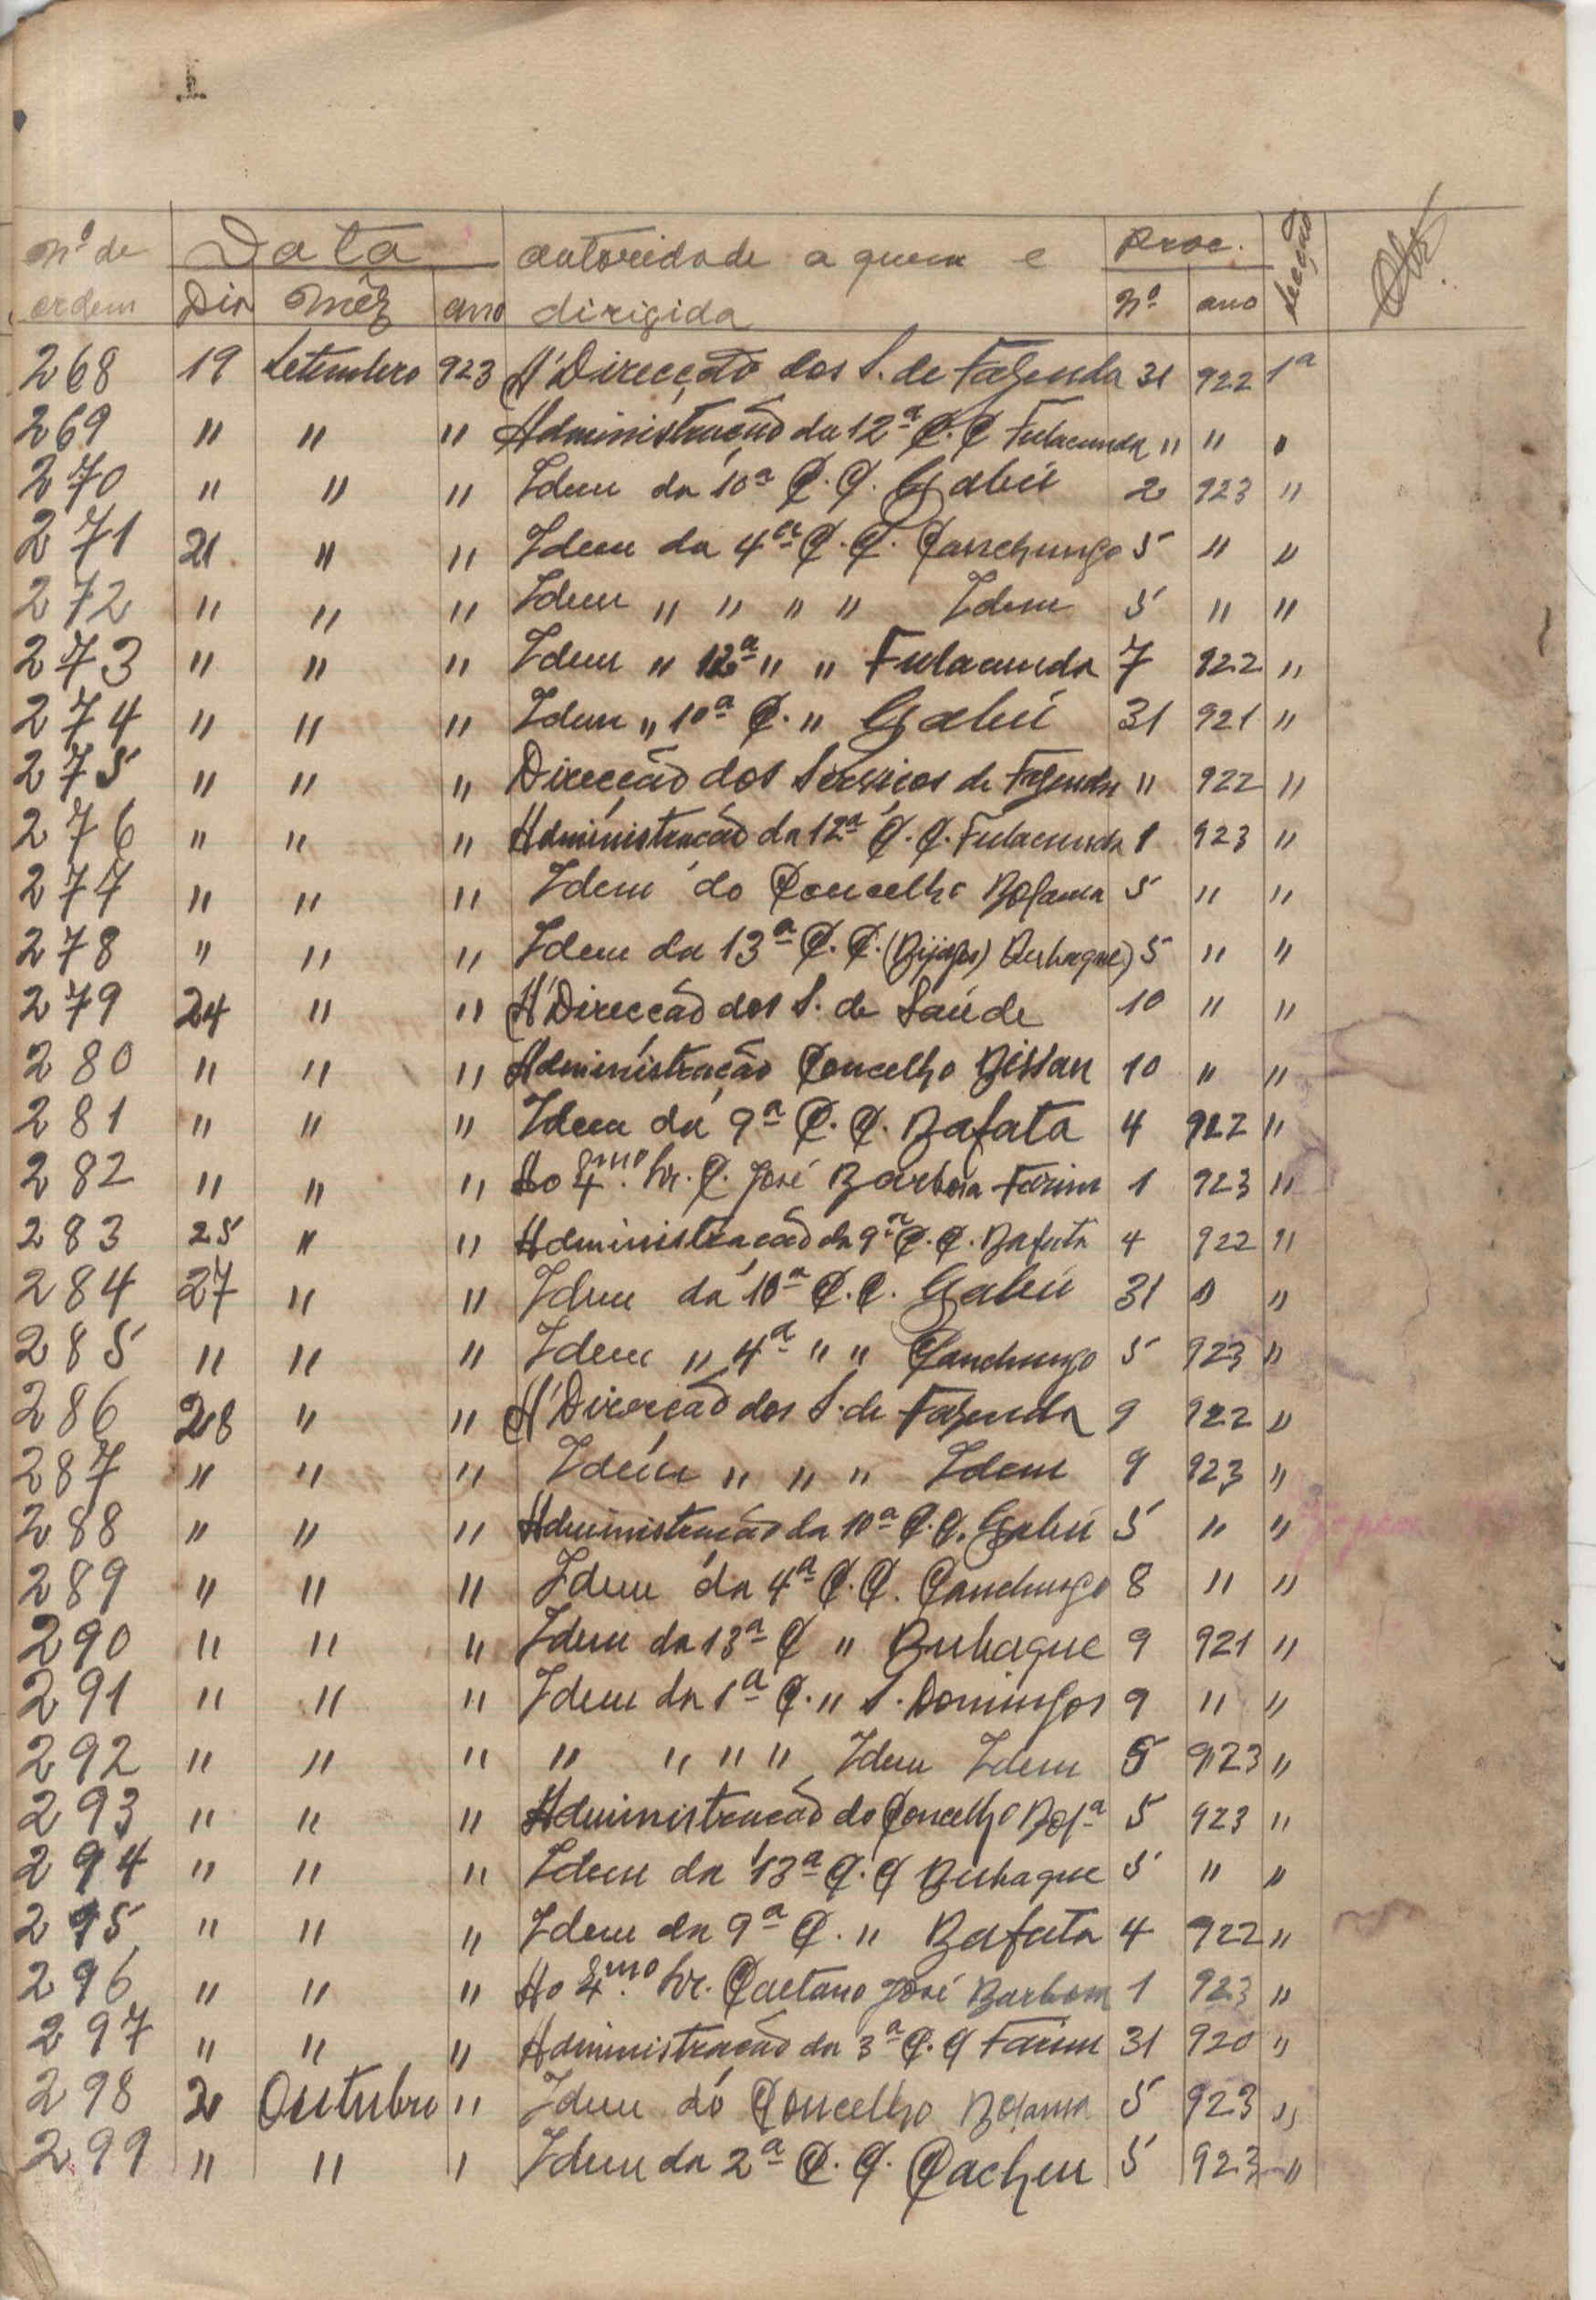 1
Nº de Data autoridade a quem e Proc. Secção Obs.
ordem Dia Mêz ano dirigida Nº ano
268 19 Setembro 923 A' Direcção dos S. de Fazenda 31 922 1ª
269 " " " Administração da 12ª C. C Fulacunda " " "
270 " " " Idem da 10ª C. C. Gabú 2 923 "
271 21 " " Idem da 4ª C. C. Canchungo 5 " "
272 " " " Idem " " " " Idem 5 " "
273 " " " Idem " 12ª " " Fulacunda 7 922 "
274 " " " Idem " 10ª C. " Gabú 31 921 "
275 " " " Direcção dos Serviços de Fazenda " 922 "
276 " " " Administração da 12ª C. C. Fulacunda 1 923 "
277 " " " Idem do Concelho Bolama 5 " "
278 " " " Idem da 13ª C. C. (Bijagos) Bubaque) 5 " "
279 24 " " A' Direcção dos S. de Saúde 10 " "
280 " " " Administração Concelho Bissau 10 " "
281 " " " Idem da 9ª C. C. Bafata 4 922 "
282 " " " Ao Exmo. Sr. C. José Barbosa Farim 1 923 "
283 25 " " Administração da 9ª C. C. Bafata 4 922 "
284 27 " " Idem da 10ª C. C. Gabú 31 " "
285 " " " Idem " 4ª " " Canchungo 5 923 "
286 28 " " A' Direcção dos S. de Fazenda 9 922 "
287 " " " Idem " " " Idem 9 923 "
288 " " " Administração da 10ª C. C. Gabú 5 " "
289 " " " Idem da 4ª C. C. Canchungo 8 " "
290 " " " Idem da 13ª C " Bubaque 9 921 "
291 " " " Idem da 1ª C. " S. Domingos 9 " "
292 " " " " " " " Idem Idem 5 923 "
293 " " " Administração do Concelho Bolª 5 923 "
294 " " " Idem da 13ª C. C Bubaque 5 " "
295 " " " Idem da 9ª C. " Bafata 4 922 "
296 " " " Ao Exmo. Sr. Caetano José Barbosa 1 923 "
297 " " " Administração da 3ª C. C Farim 31 920 "
298 2 Outubro " Idem do Concelho Bolama 5 923 "
299 " " " Idem da 2ª C. C. Cacheu 5 923 "